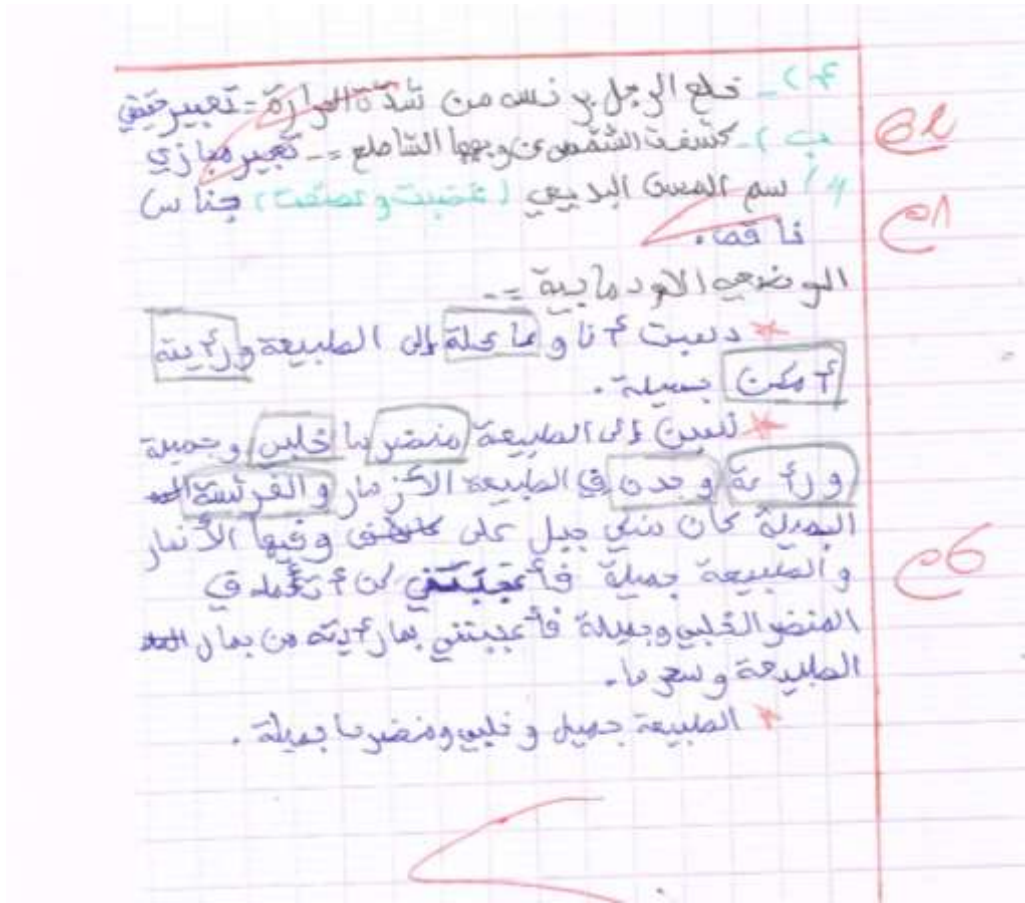 أ)- خلع الرجل برنسه من شدّة الحرارة = تعبير حقيقي
ب)- كشفت الشمس عن وجهها الساطع =- تعبير مجازي
سم المحسن البديعي (غضبت وعصفت) جناس
ناقص.
الوضعي الاودماجية =-
* دهبت أنا وعا علة إلى الطبيعة ورأيتة
أمكن جميلة.
* دهبت إلى الطبيعة منضرها خلبن وجميلة
ورأعة وجدن في الطبيعة الأزهار والفرشة
الجميلة كان جبل على وفيها الأنهار
والطبيعة جميلة فأعجبتني أن أتأمله في
المنضر الخلبي وجميلة فأعجبتني بمارأيته من جمال
الطبيعة وسحرها.
* الطبيعة جميل وخلبي ومنضرها جميلة.